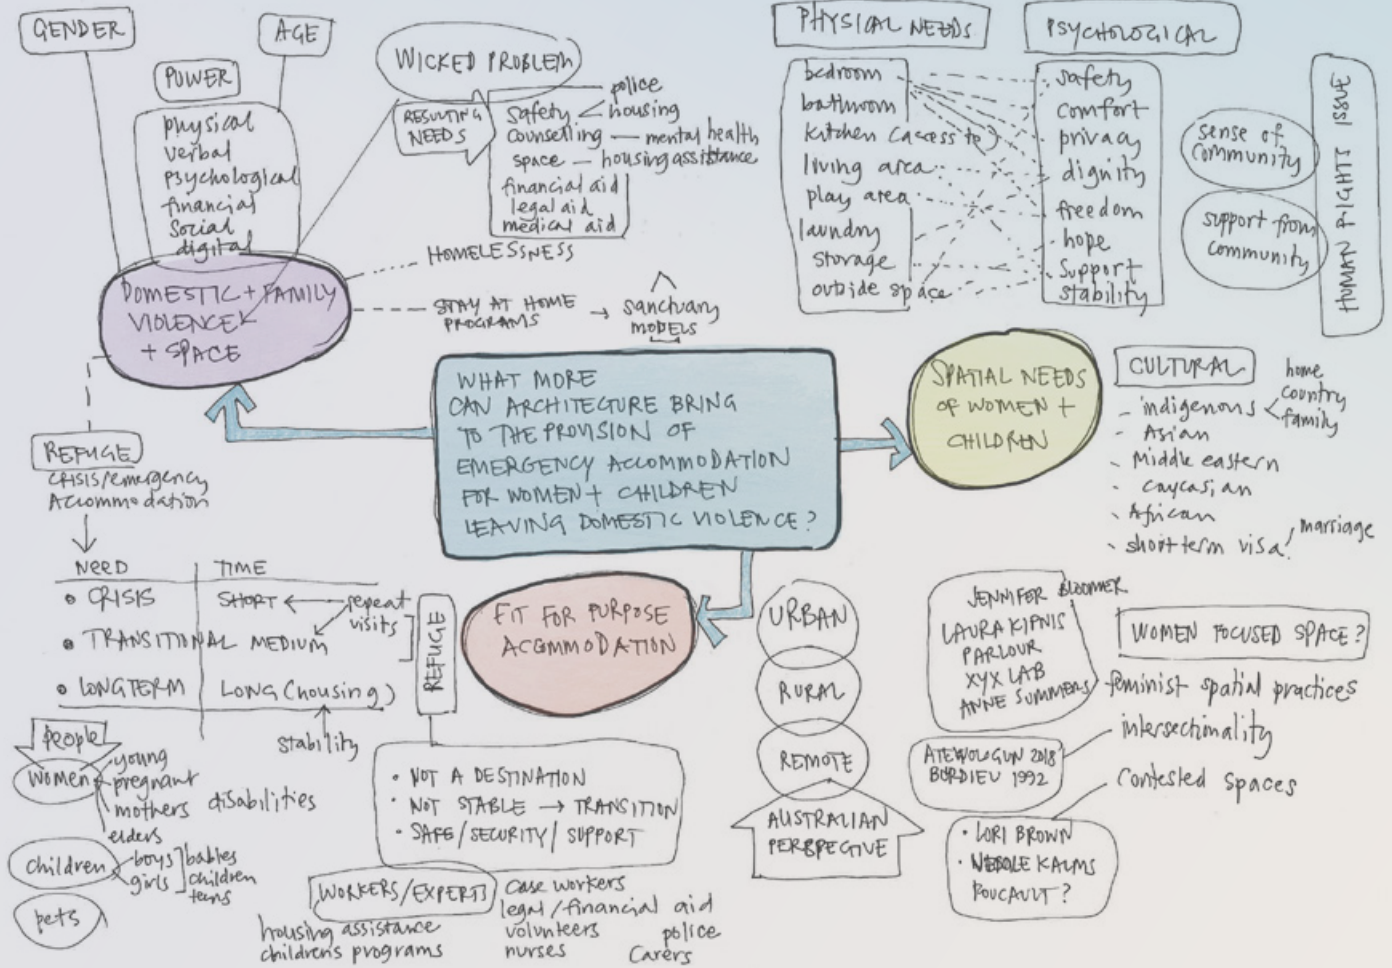 GENDER
AGE
POWER
physical
verbal
psychological
financial
Social
digital
WICKED PROBLEM
RESULTING
NEEDS
safety
police
housing
counselling — mental health
space — housing assistance
financial aid
legal aid
medical aid
HOMELESSNESS
STAY AT HOME
PROGRAMS
→ sanctuary
MODELS
DOMESTIC + FAMILY
VIOLENCE
+ SPACE
PHYSICAL NEEDS
bedroom
bathroom
kitchen (access to)
living area
play area
laundry
storage
outside space
PSYCHOLOGICAL
safety
comfort
privacy
dignity
freedom
hope
support
stability
sense of
community
support from
community
HUMAN RIGHTS ISSUE
WHAT MORE
CAN ARCHITECTURE BRING
TO THE PROVISION OF
EMERGENCY ACCOMMODATION
FOR WOMEN + CHILDREN
LEAVING DOMESTIC VIOLENCE?
SPATIAL NEEDS
OF WOMEN +
CHILDREN
CULTURAL
- indigenous
home
country
family
- Asian
- Middle eastern
- caucasian
- African
- short term visa
marriage
REFUGE
CRISIS/emergency
Accommodation
NEED TIME
• CRISIS SHORT
repeat
visits
• TRANSITIONAL MEDIUM
• LONGTERM LONG (housing)
stability
REFUGE
FIT FOR PURPOSE
ACCOMMODATION
people
women
young
pregnant
mothers
elders
disabilities
children
boys
girls
babies
children
teens
pets
• NOT A DESTINATION
• NOT STABLE → TRANSITION
• SAFE/SECURITY/SUPPORT
WORKERS/EXPERTS
housing assistance
childrens programs
case workers
legal/financial aid
volunteers
nurses
police
Carers
URBAN
RURAL
REMOTE
AUSTRALIAN
PERSPECTIVE
JENNIFER BLOOMER
LAURA KIPNIS
PARLOUR
XYX LAB
ANNE SUMMERS
WOMEN FOCUSED SPACE?
feminist spatial practices
intersectionality
ATEWOLOGUN 2018
BORDIEU 1992
contested spaces
• LORI BROWN
KALMS
FOUCAULT?